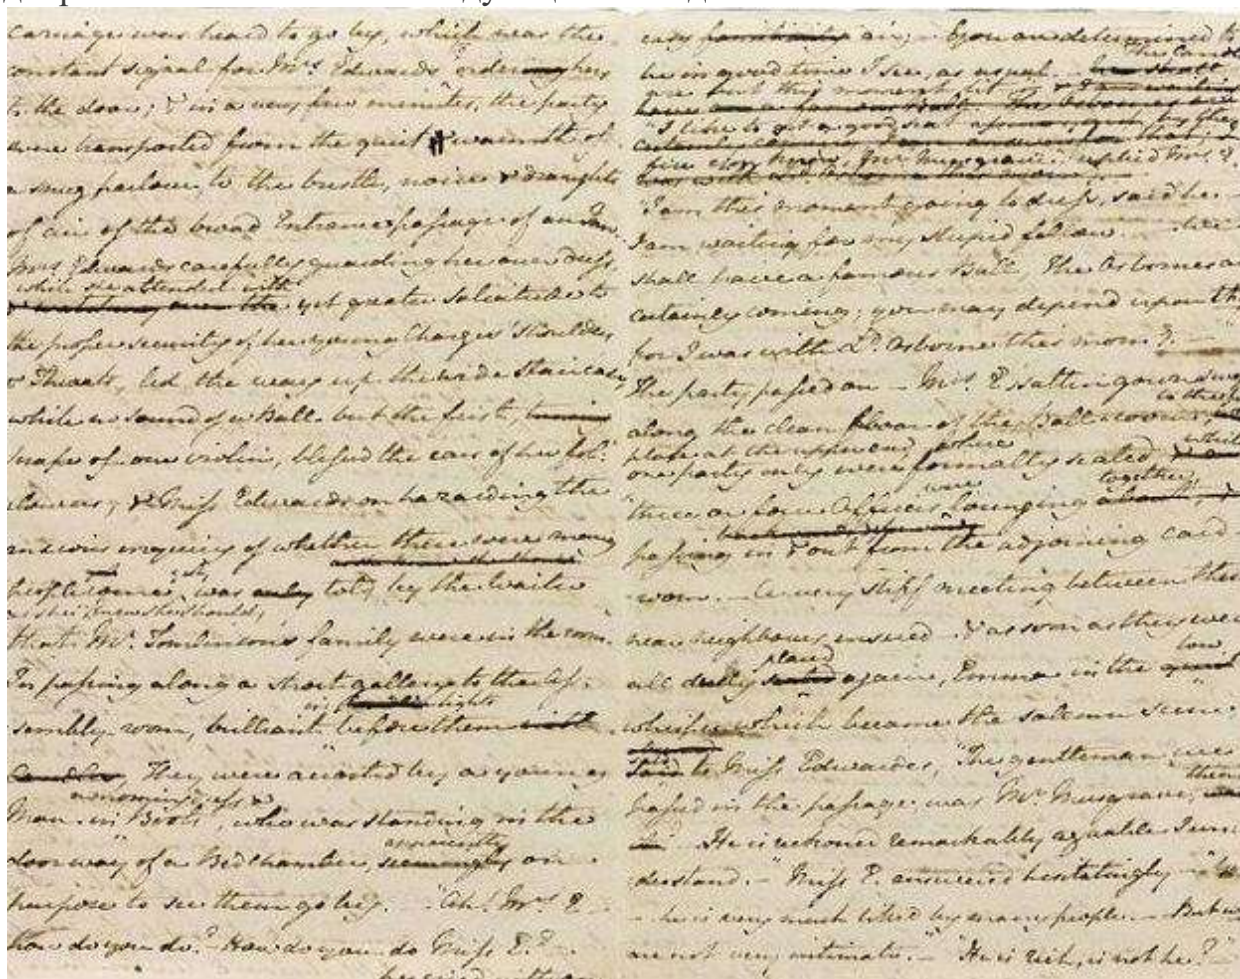 Carriage was heard to go by, which was the
constant signal for Mrs. Edwards' ordering hers
to the door; & in a very few minutes, the party
were transported from the quiet & warmth of
a snug parlour, to the bustle, noise & draughts
of air of the broad Entrance-passage of an Inn.
Mrs. Edwards carefully guarding her own dress,
while she attended with
yet greater Solicitude to
the proper security of her young Charges' Shoulders
& Throats, led the way up the wide staircase,
while no sound of a Ball but the first
Scrape of one violin, blessed the ears of her fol:
:lowers, & Miss Edwards on hazarding the
anxious enquiry of whether there were many
people come yet was told by the Waiter
as she knew she should,
that Mr. Tomlinson's family were in the room.
In passing along a short gallery to the As:
:sembly-room, brilliant in lights before them
They were accosted by a young
Man in a morning dress &
Boots, who was standing in the
doorway of a Bedchamber, apparently on
purpose to see them go by. "Ah! Mrs. E—
how do you do? How do you do Miss E.?—
easy air; You are determined to
be in good time I see, as usual. The Candles
are but this moment lit
"I like to get a good seat by the
fire you know, Mr. Musgrave. replied Mrs. E.
"I am this moment going to dress, said he—
I am waiting for my stupid fellow. We
shall have a famous Ball, The Osbornes are
certainly coming; you may depend upon that
for I was with Ld. Osborne this morng.—"
The party passed on— Mrs. E's sattin gown
along the clean floor of the Ball-room, to the fire
place at the upper end, where
one party only were formally seated, while
three or four Officers were lounging together,
passing in & out from the adjoining card-
room.— A very stiff meeting between these
near neighbours ensued & as soon as they were
all duely placed again, Emma in the low
whisper which became the solemn scene,
said to Miss Edwardes, "The gentleman we
passed in the passage, was Mr. Musgrave, then
He is reckoned remarkably agreable I un:
:derstand.—" Miss E. answered hesitatingly—
he is very much liked by many people.— But we
are not very intimate.—" "He is rich, is not he?"